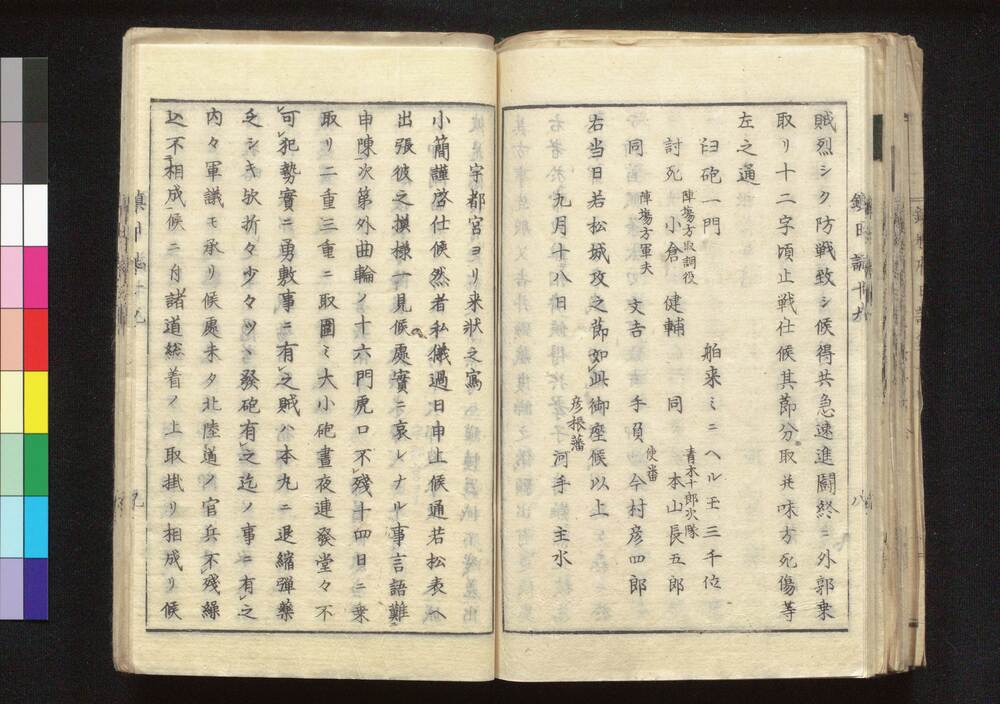 賊烈シク防戦致シ候得共急速進闘終ニ外郭乗
取リ十二字頃止戦仕候其節分取并味方死傷等
左之通
臼砲一門　舶来ミニヘル玉三千位
陣場方取調役　青木十郎次隊
討死　小倉健輔　同　本山長五郎
陣場方軍夫　使番
同　文吉　手負　今村彦四郎
右当日若松城攻之節如此御座候以上
彦根藩
九月十八日　河手主水
鎮将
八
宇都宮ヨリ来状之寫
小簡謹啓仕候然者私儀過日申上候通若松表ヘ
出張彼之摸様一見候處實ニ哀レナル事言語難
申陳次第外曲輪ノ十六門虎口不残十四日ニ乗
取リ二重三重ニ取圍ミ大小砲晝夜連發堂々不
可犯勢實ニ勇敷事ニ有之賊ハ本丸ニ退縮弾藥
乏シキ欤折々少々ツヽ發砲有之迄ノ事ニ有之
内々軍議モ承リ候處未タ北陸道ノ官兵不残繰
込不相成候ニ付諸道総着ノ上取掛リ相成リ候
九